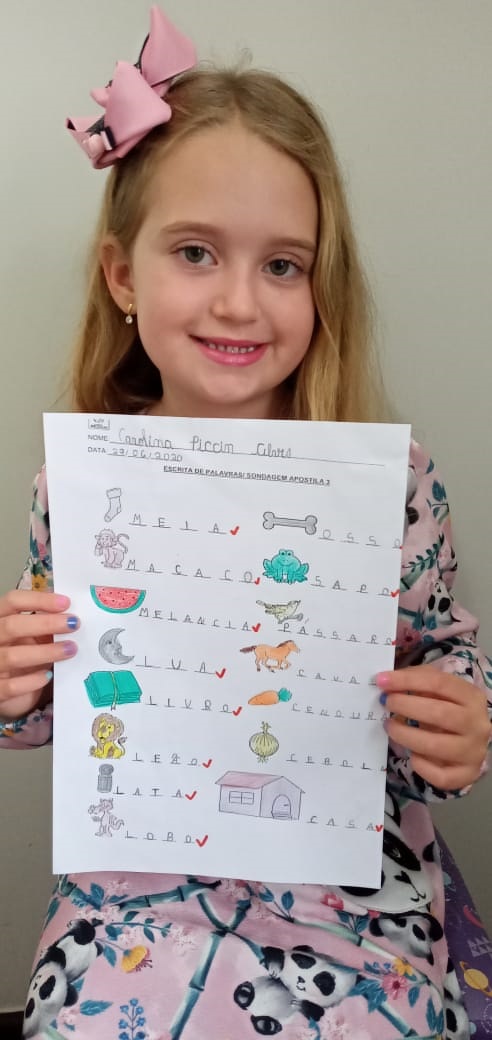 NOME Carolina Piccin Alves
DATA 29/06/2020
ESCRITA DE PALAVRAS/ SONDAGEM APOSTILA 2
MEIA OSSO
MACACO SAPO
MELANCIA PÁSSARO
LUA CAVA
LIVRO CENOURA
LEÃO CEBOL
LATA CASA
LOBO